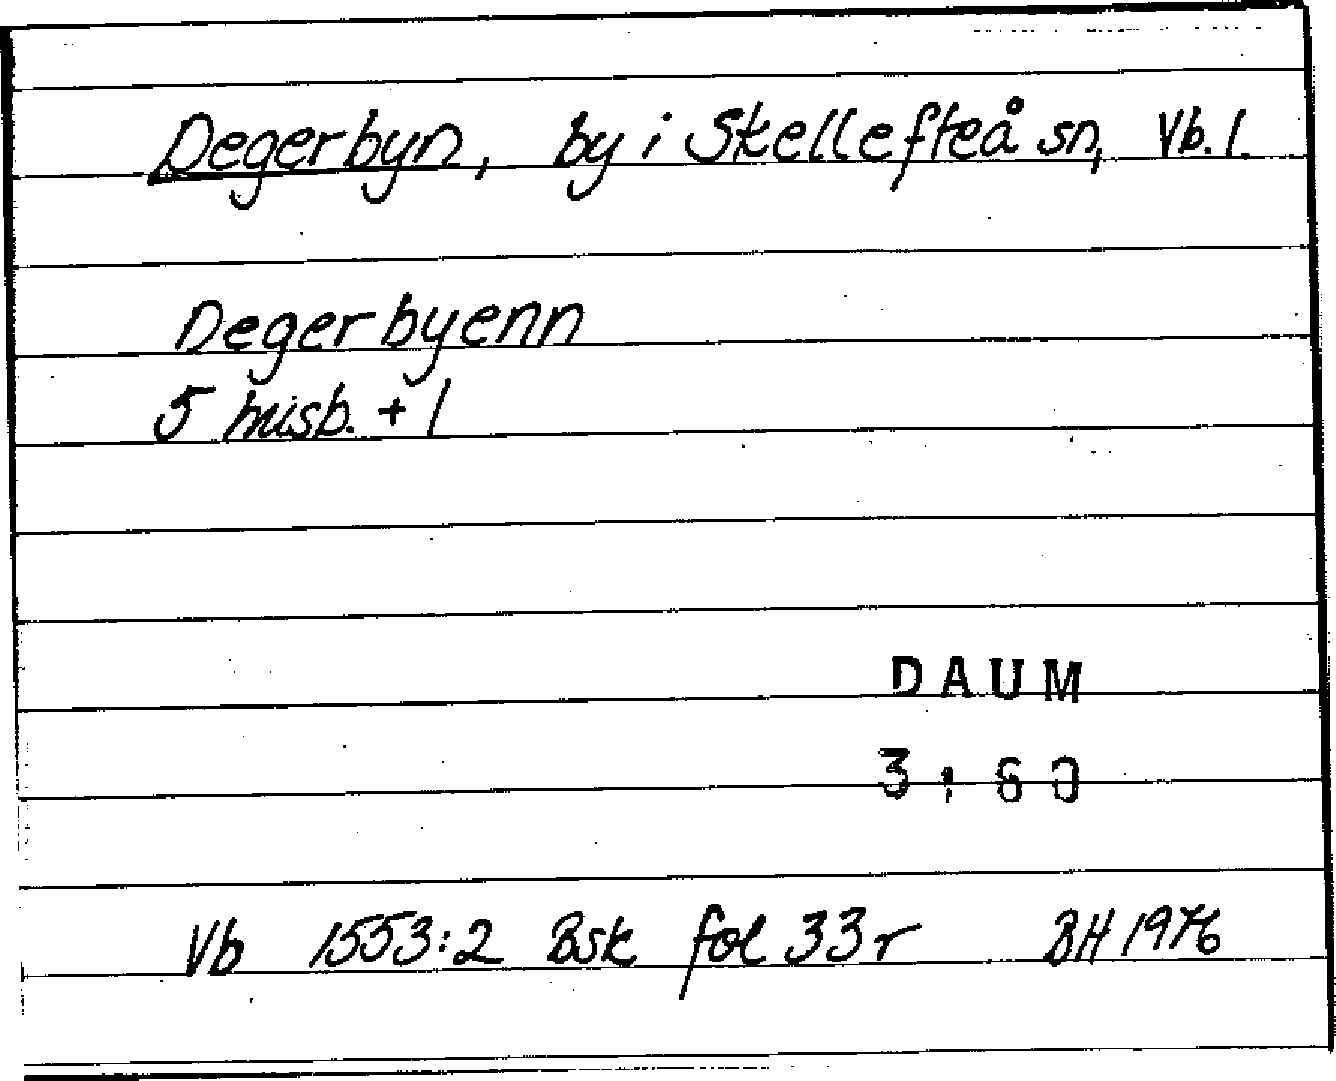 Degerbyn, by i Skellefteå sn, Vb. l.
Degerbyenn
5 husb. + 1
DAUM
3:60
Vb 1553:2 Bsk fol 33 r BH 1976